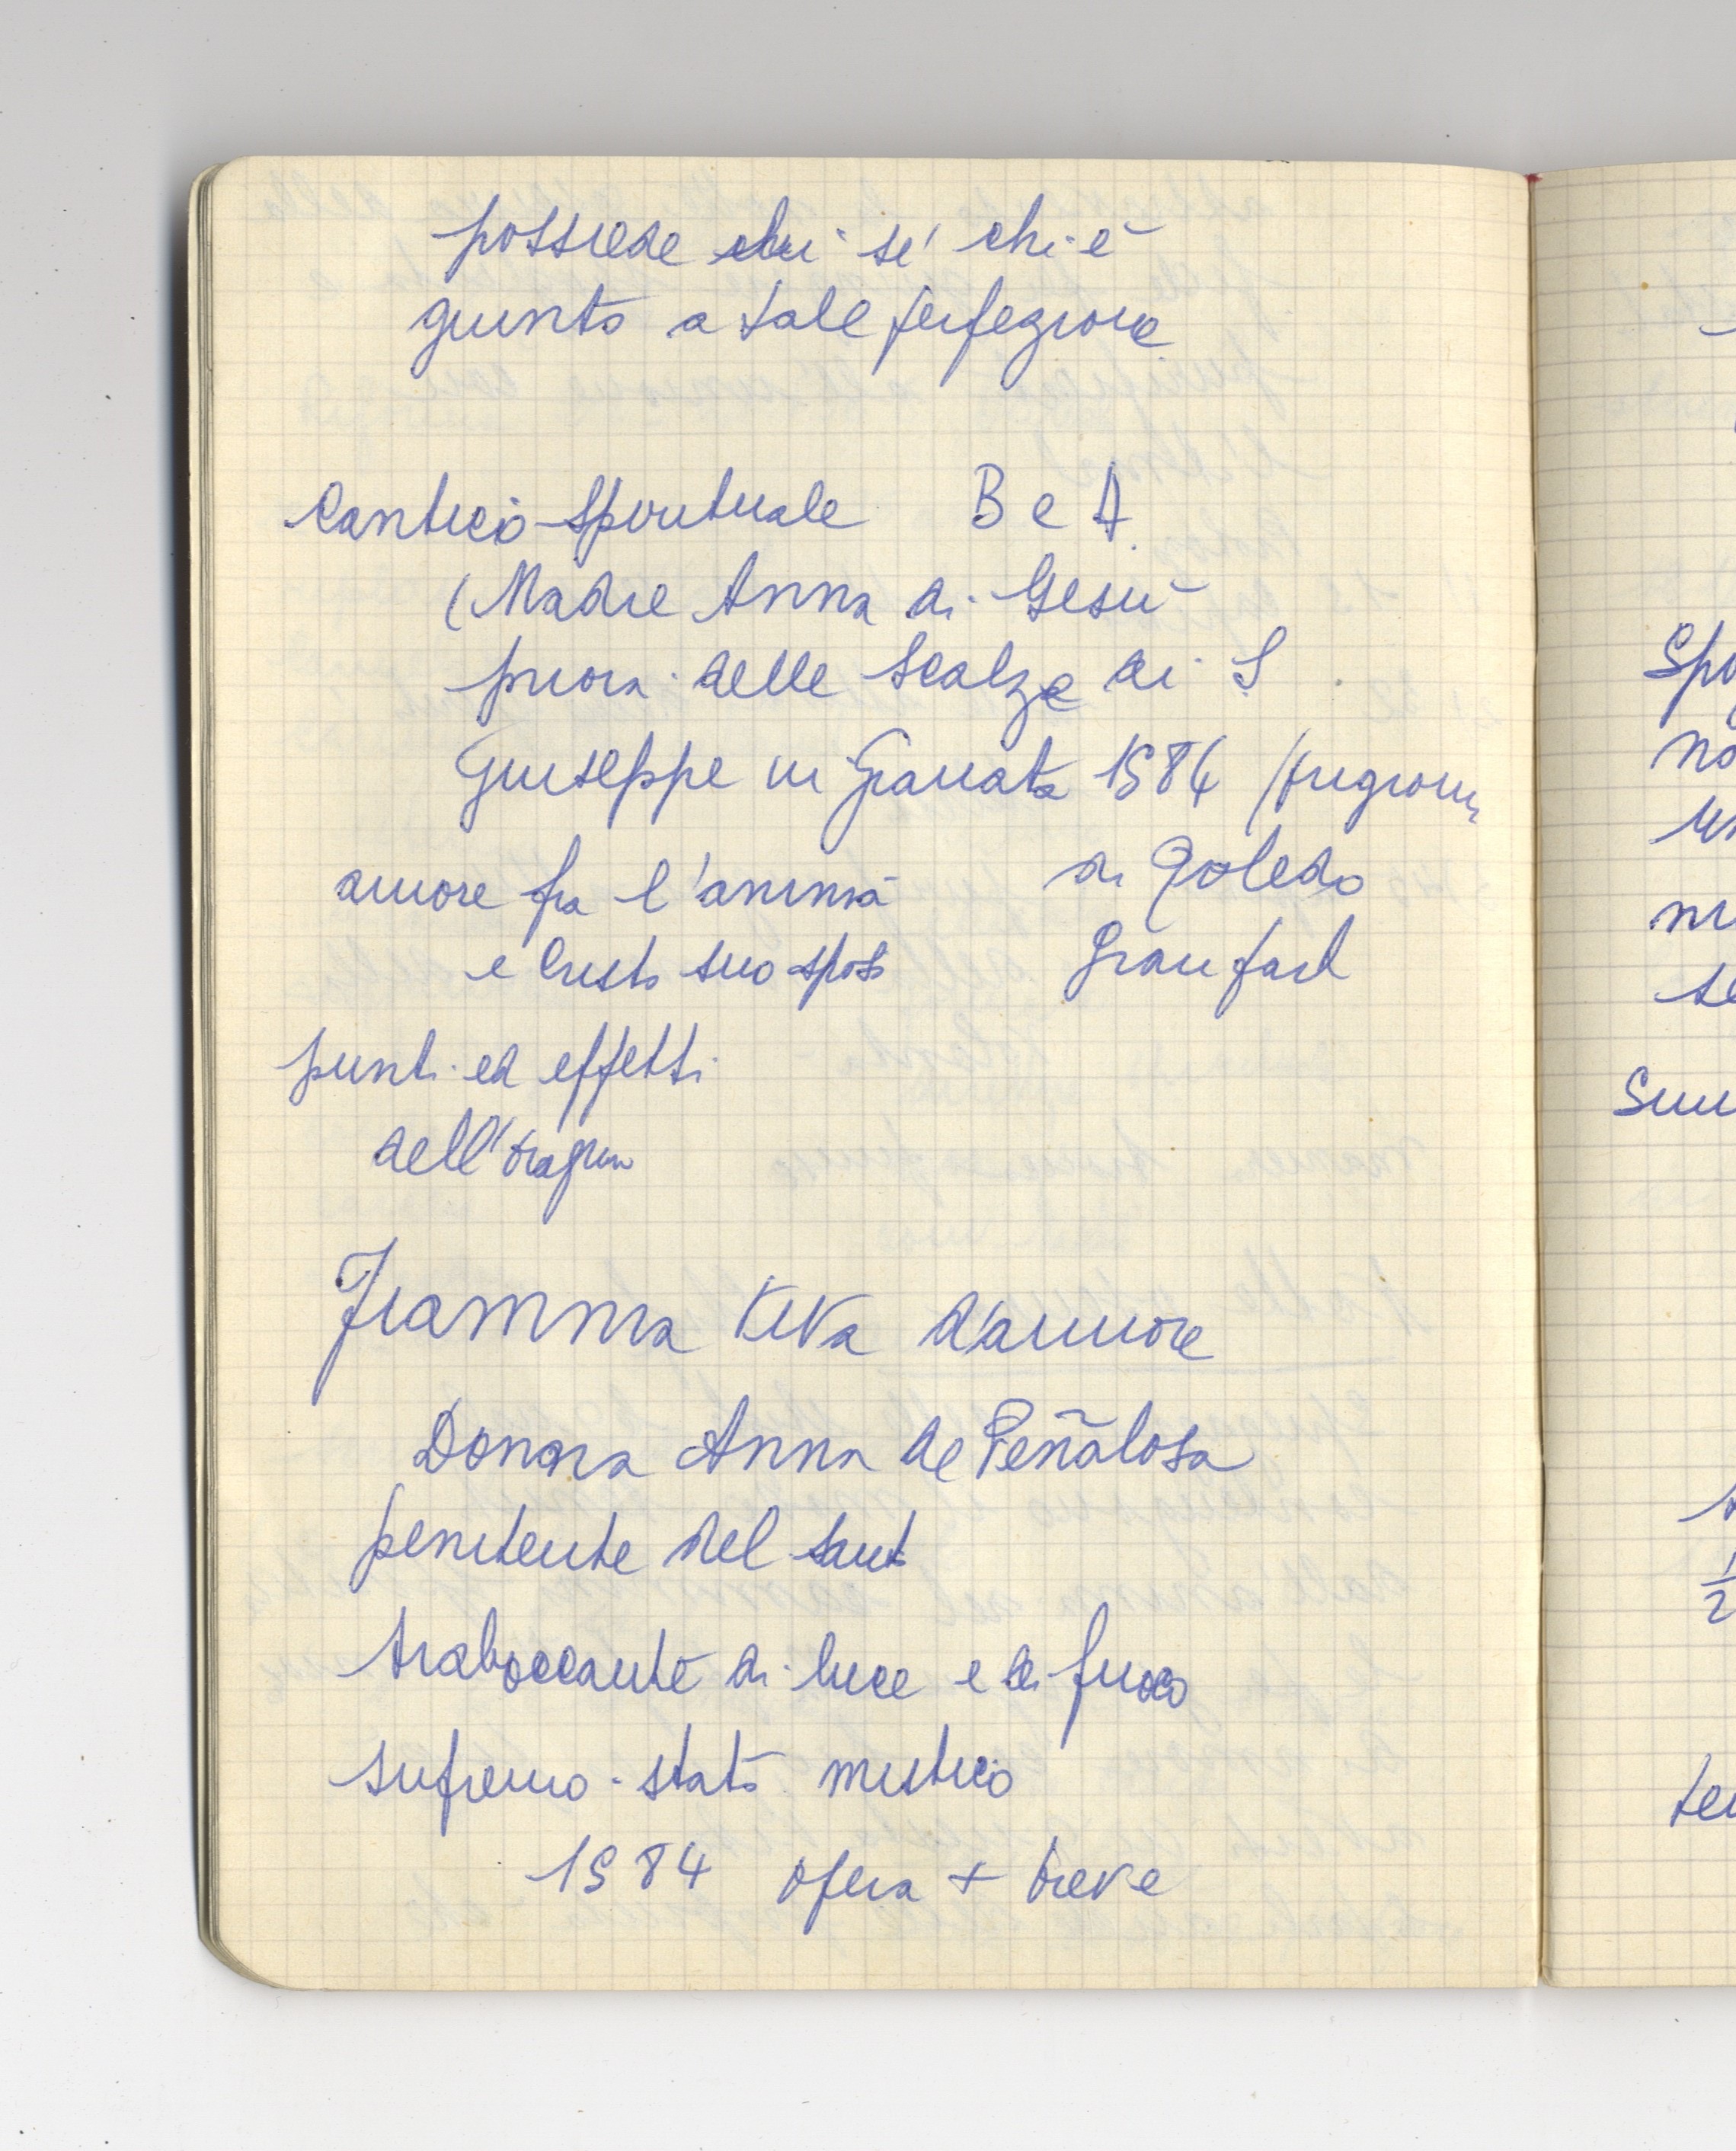 possiede di sé chi è
giunto a tale perfezione
Cantico Spirituale B e A
(Madre Anna di Gesù
priora delle Scalze di S
Giuseppe in Granata 1584 (prigione
di Toledo
amore fra l'anima
e Cristo suo sposo
punti ed effetti
dell'orazion
Fiamma viva d'amore
Donna Anna de Peñalosa
penitente del sant
traboccante di luce e di fuoco
supremo stato mistico
1584 opera + breve
Spo
no
un
te
1/2